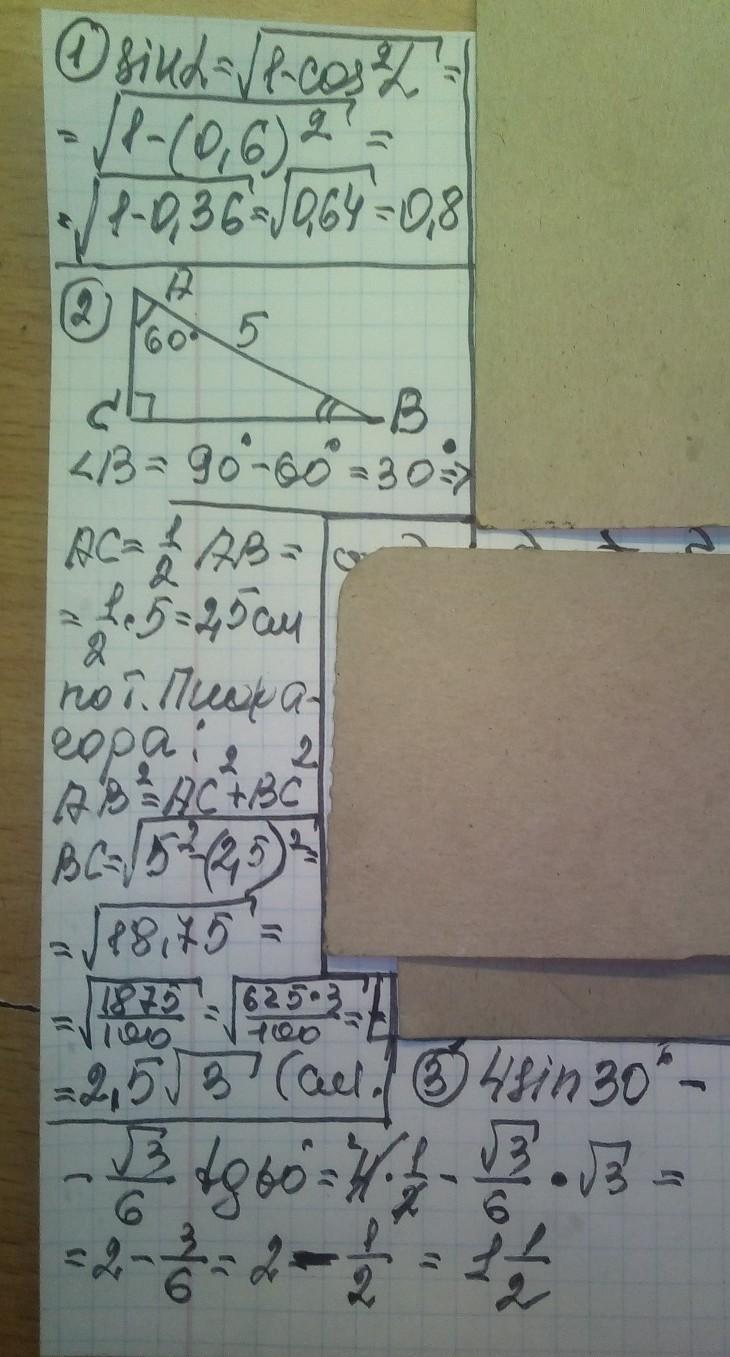 ① sinα = √(1-cos²α) =
= √(1-(0,6)²) =
= √(1-0,36) = √0,64 = 0,8
② A
60° 5
C B
∠B = 90° - 60° = 30° ⇒
AC = 1/2 AB =
= 1/2 · 5 = 2,5 см
по т. Пифа-
гора:
AB² = AC² + BC²
BC = √(5² - (2,5)²) =
= √18,75 =
= √(1875/100) = √(625·3/100) =
= 2,5√3 (см.
③ 4sin30° -
- √3/6 tg60° = 4 · 1/2 - √3/6 · √3 =
= 2 - 3/6 = 2 - 1/2 = 1 1/2